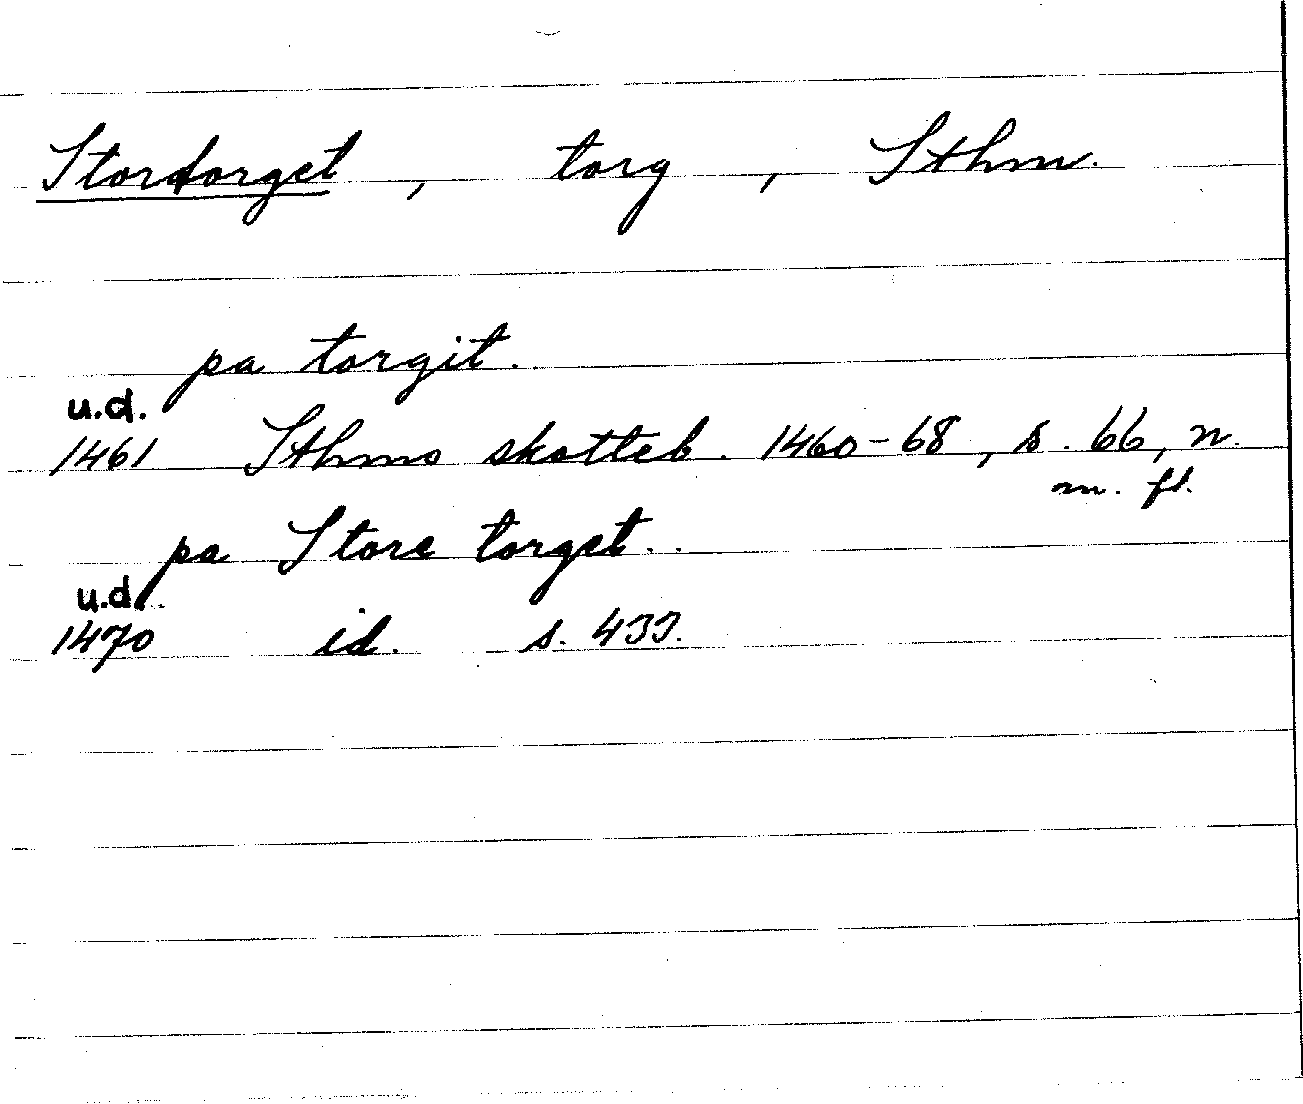 Stortorget, torg, Sthm.
pa torgit.
u.d.
1461 Sthms skotteb. 1460-68, s. 66, n.
m. fl.
pa Store torget..
u.d.
1470 id. s. 433.